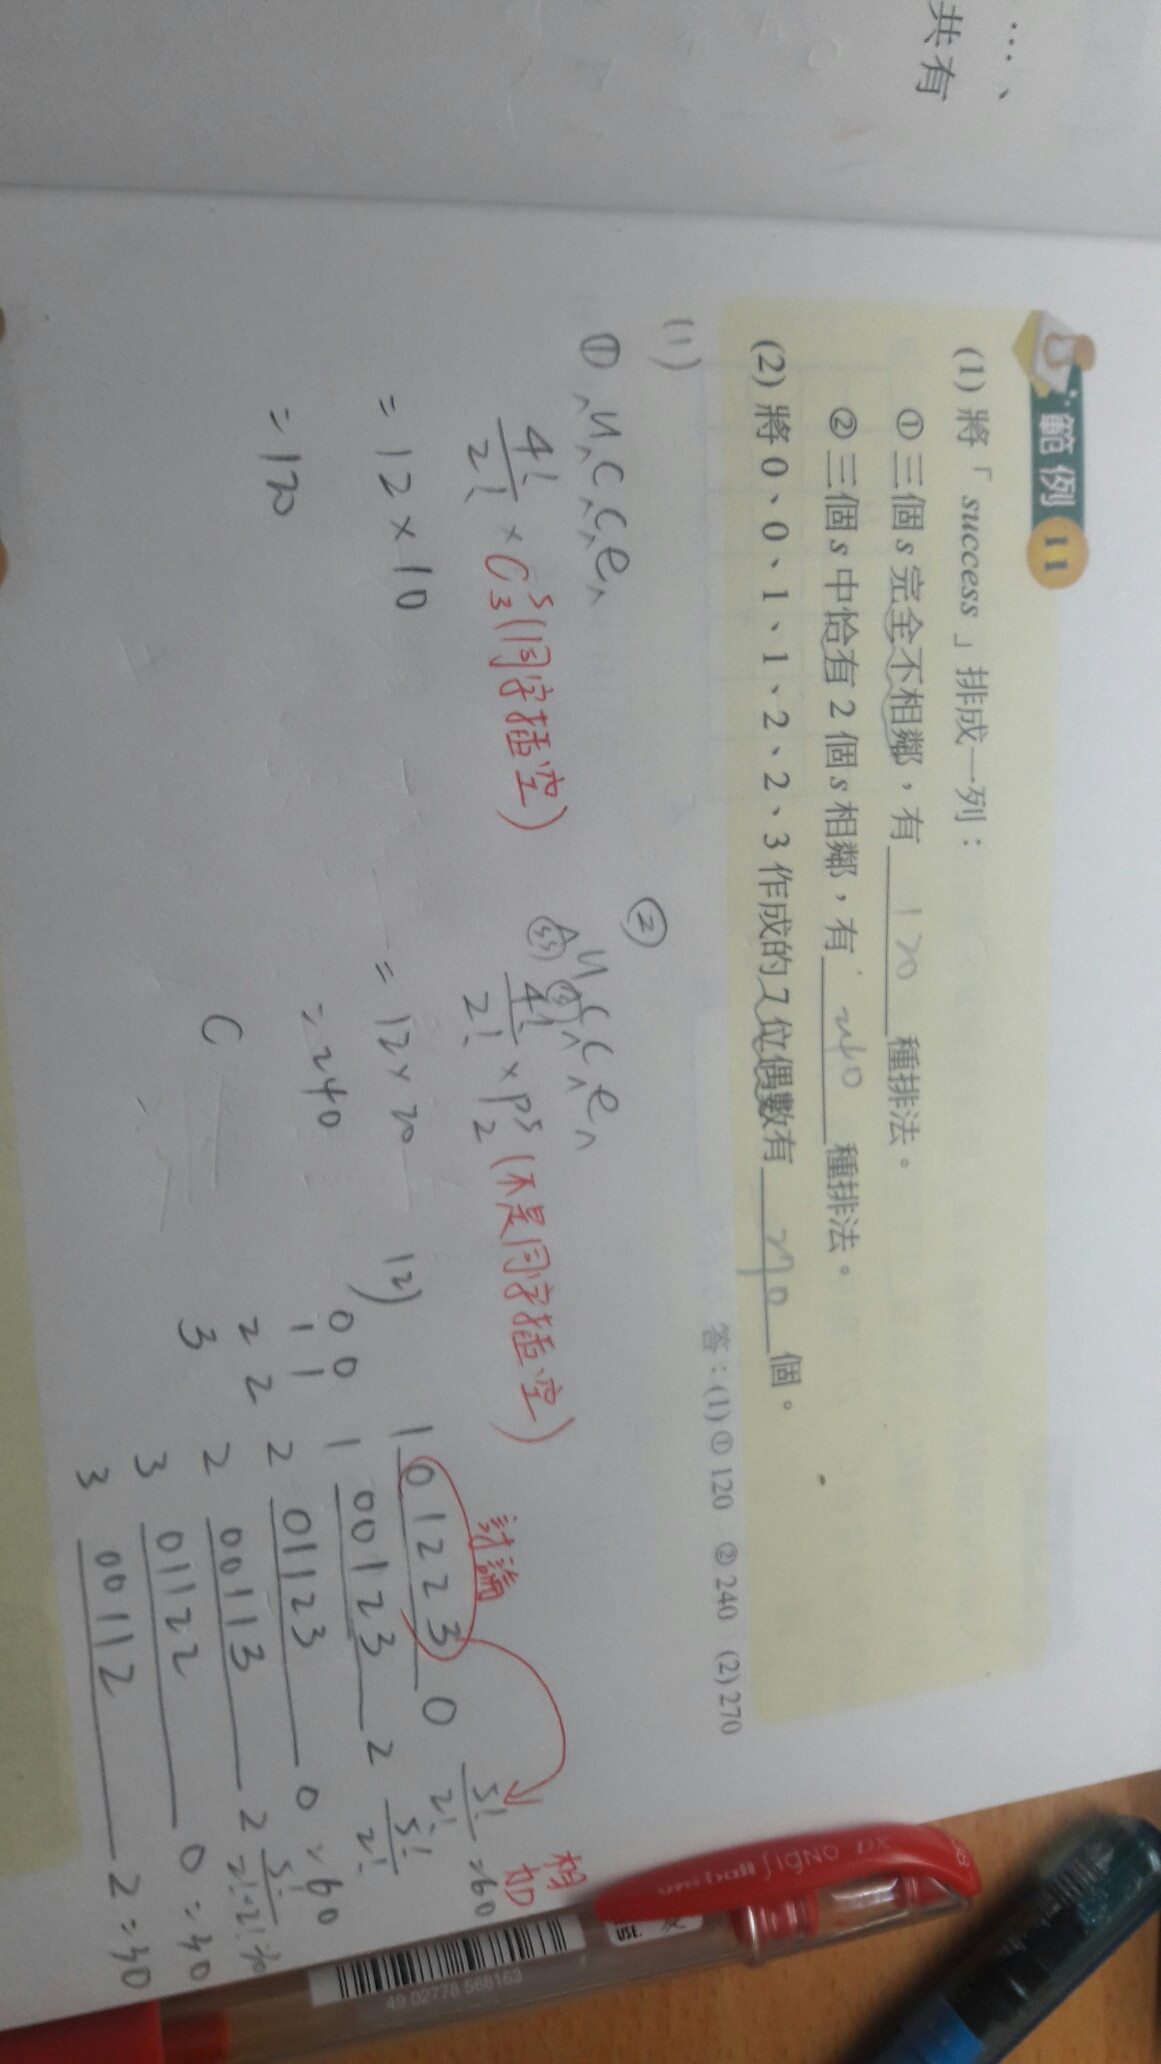 …、
共有
範例 11
(1) 將「success」排成一列：
① 三個 s 完全不相鄰，有 120 種排法。
② 三個 s 中恰有 2 個 s 相鄰，有 240 種排法。
(2) 將 0、0、1、1、2、2、3 作成的 7 位偶數有 270 個。
答：(1) ① 120 ② 240 (2) 270
(1)
① ^u^c^c^e^
4!/2! × C⁵₃ (同字插空)
= 12 × 10
= 120
②
^u^c^c^e^
(ss) (s)
4!/2! × P⁵₂ (不是同字插空)
= 12 × 20
= 240
C
(2)
0 0
1 1
2 2
3
討論
1 01223 0 5!/2! = 60
相加
1 00123 2 5!/2!
2 01123 0 = 60
2 00113 2 5!/2!·2! = 30
3 01122 0 = 30
3 00112 2 = 30
uni-ball SIGNO DX
USE.
49 02778 568163